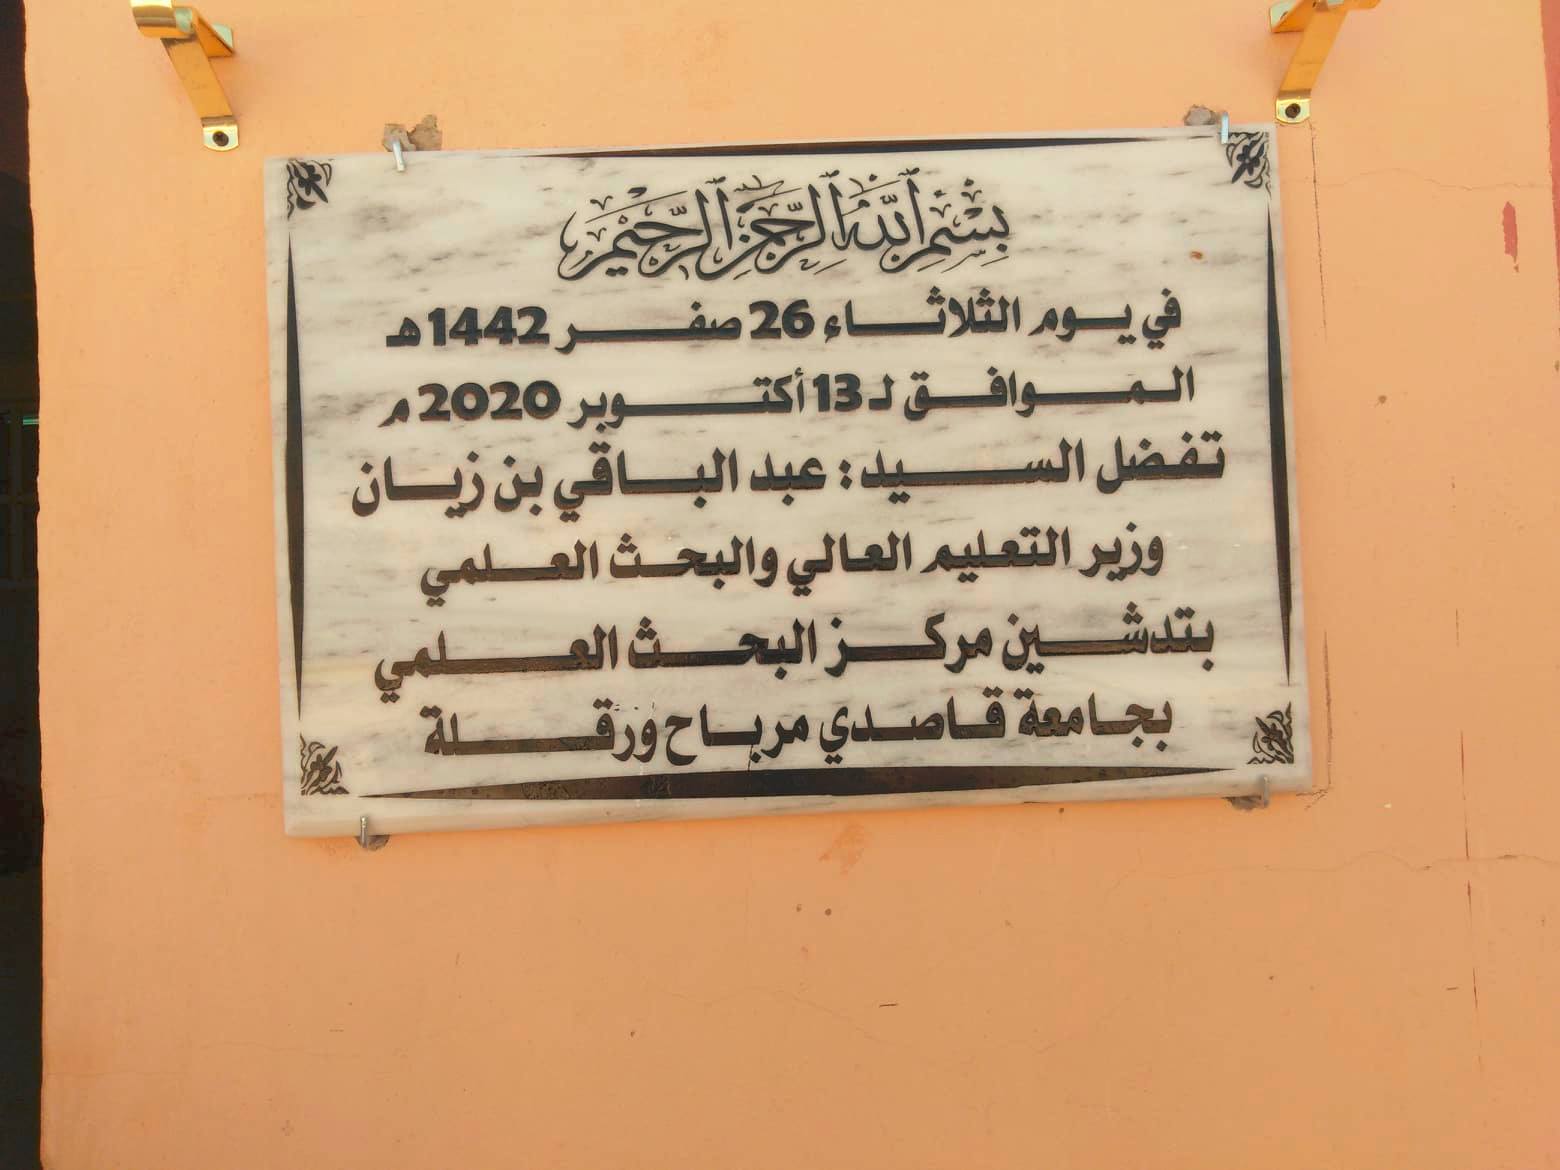 بسم الله الرحمن الرحيم
في يوم الثلاثاء 26 صفر 1442 هـ
الموافق لـ 13 أكتوبر 2020 م
تفضل السيد : عبد الباقي بن زيان
وزير التعليم العالي والبحث العلمي
بتدشين مركز البحث العلمي
بجامعة قاصدي مرباح ورقلة